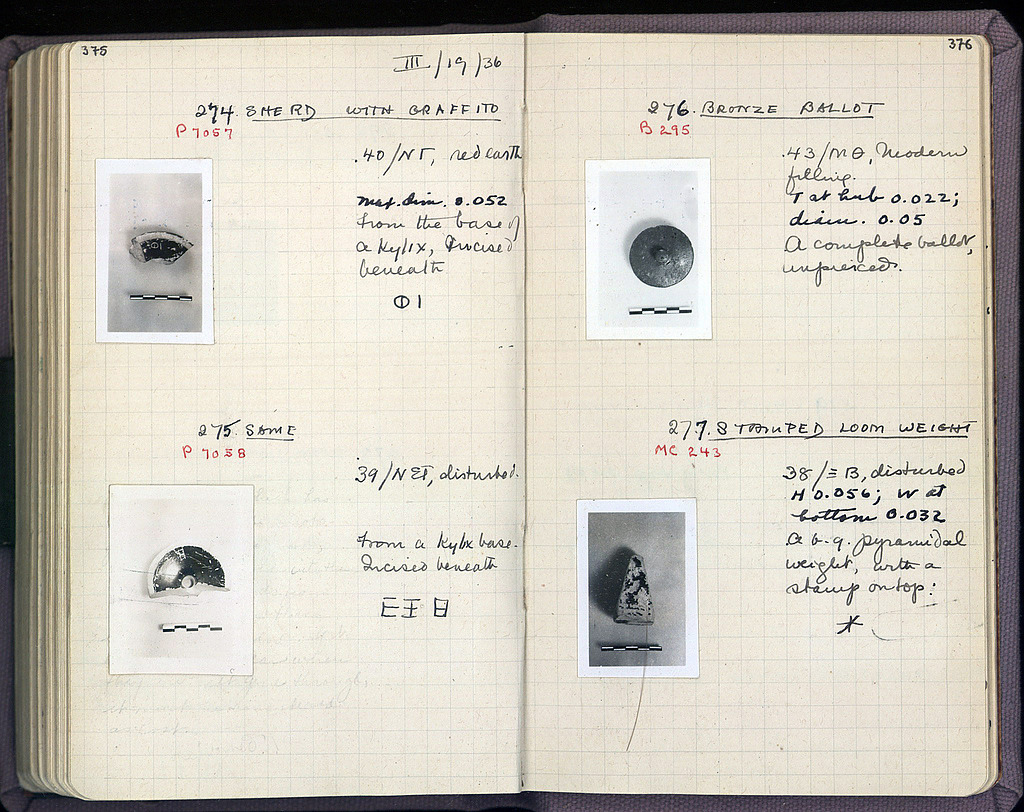 375
III/19/36
274. SHERD WITH GRAFFITO
P 7057
.40/ΝΓ, red earth
max. dim. 0.052
From the base of
a Kylix, Incised
beneath
ΦΙ
275. SAME
P 7058
39/ΝΕΓ, disturbed.
From a Kylix base.
Incised beneath
376
276. BRONZE BALLOT
B 295
.43/ΜΘ, Modern
filling.
T at hub 0.022;
diam. 0.05
A complete ballot,
unpierced.
277. STAMPED LOOM WEIGHT
MC 243
38/Ξ Β, disturbed
H 0.056; W at
bottom 0.032
A b-g. pyramidal
weight, with a
stamp on top: